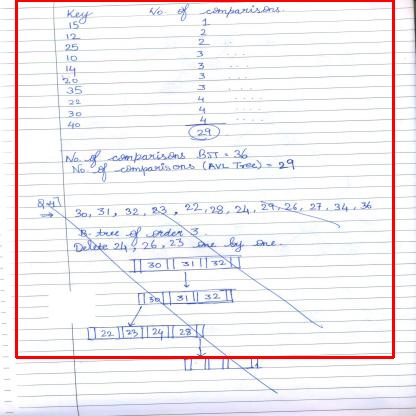 Key No. of comparisons.
15 1
12 2
25 2
10 3
14 3
20 3
35 3
22 4
30 4
40 4
29
No. of comparisons BST = 36
No. of comparisons (AVL Tree) = 29
30, 31, 32, 23, 22, 28, 24, 29, 26, 27, 34, 36
B-tree of order 3
Delete 24, 26, 23 one by one.
30 31 32
30 31 32
22 23 24 28